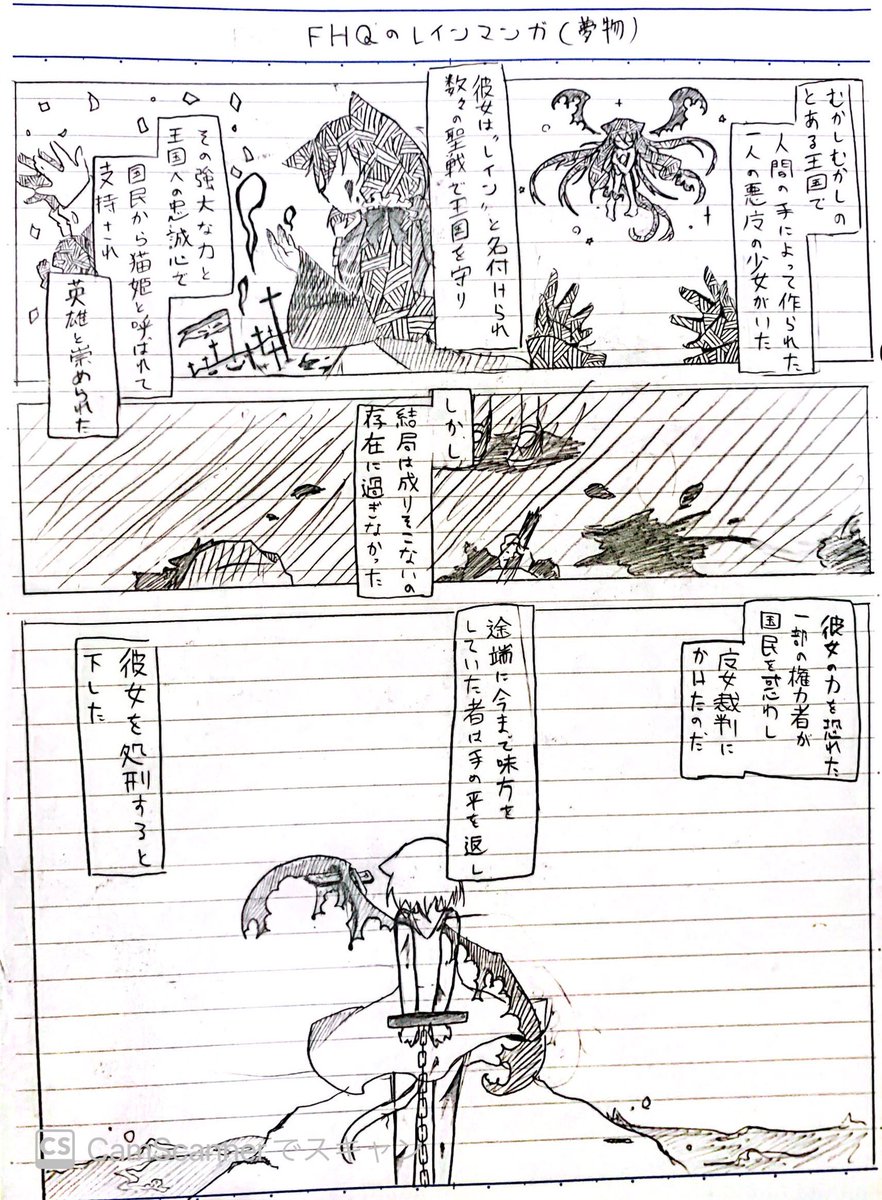 FHQのレインマンガ(夢物)
むかしむかしの
とある王国で
人間の手によって作られた
一人の悪魔の少女がいた
彼女は"レイン"と名付けられ
数々の聖戦で王国を守り
その強大な力と
王国への忠誠心で
国民から猫姫と呼ばれて
支持され
英雄と崇められた
しかし
結局は成りそこないの
存在に過ぎなかった
彼女の力を恐れた
一部の権力者が
国民を惑わし
魔女裁判に
かけたのだ
途端に今まで味方を
していた者は手の平を返し
彼女を処刑すると
下した
CS CamScanner でスキャン